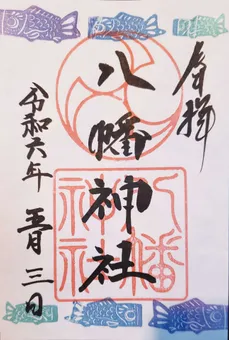 奉拝
八幡神社
八幡
神社
令和六年 五月三日